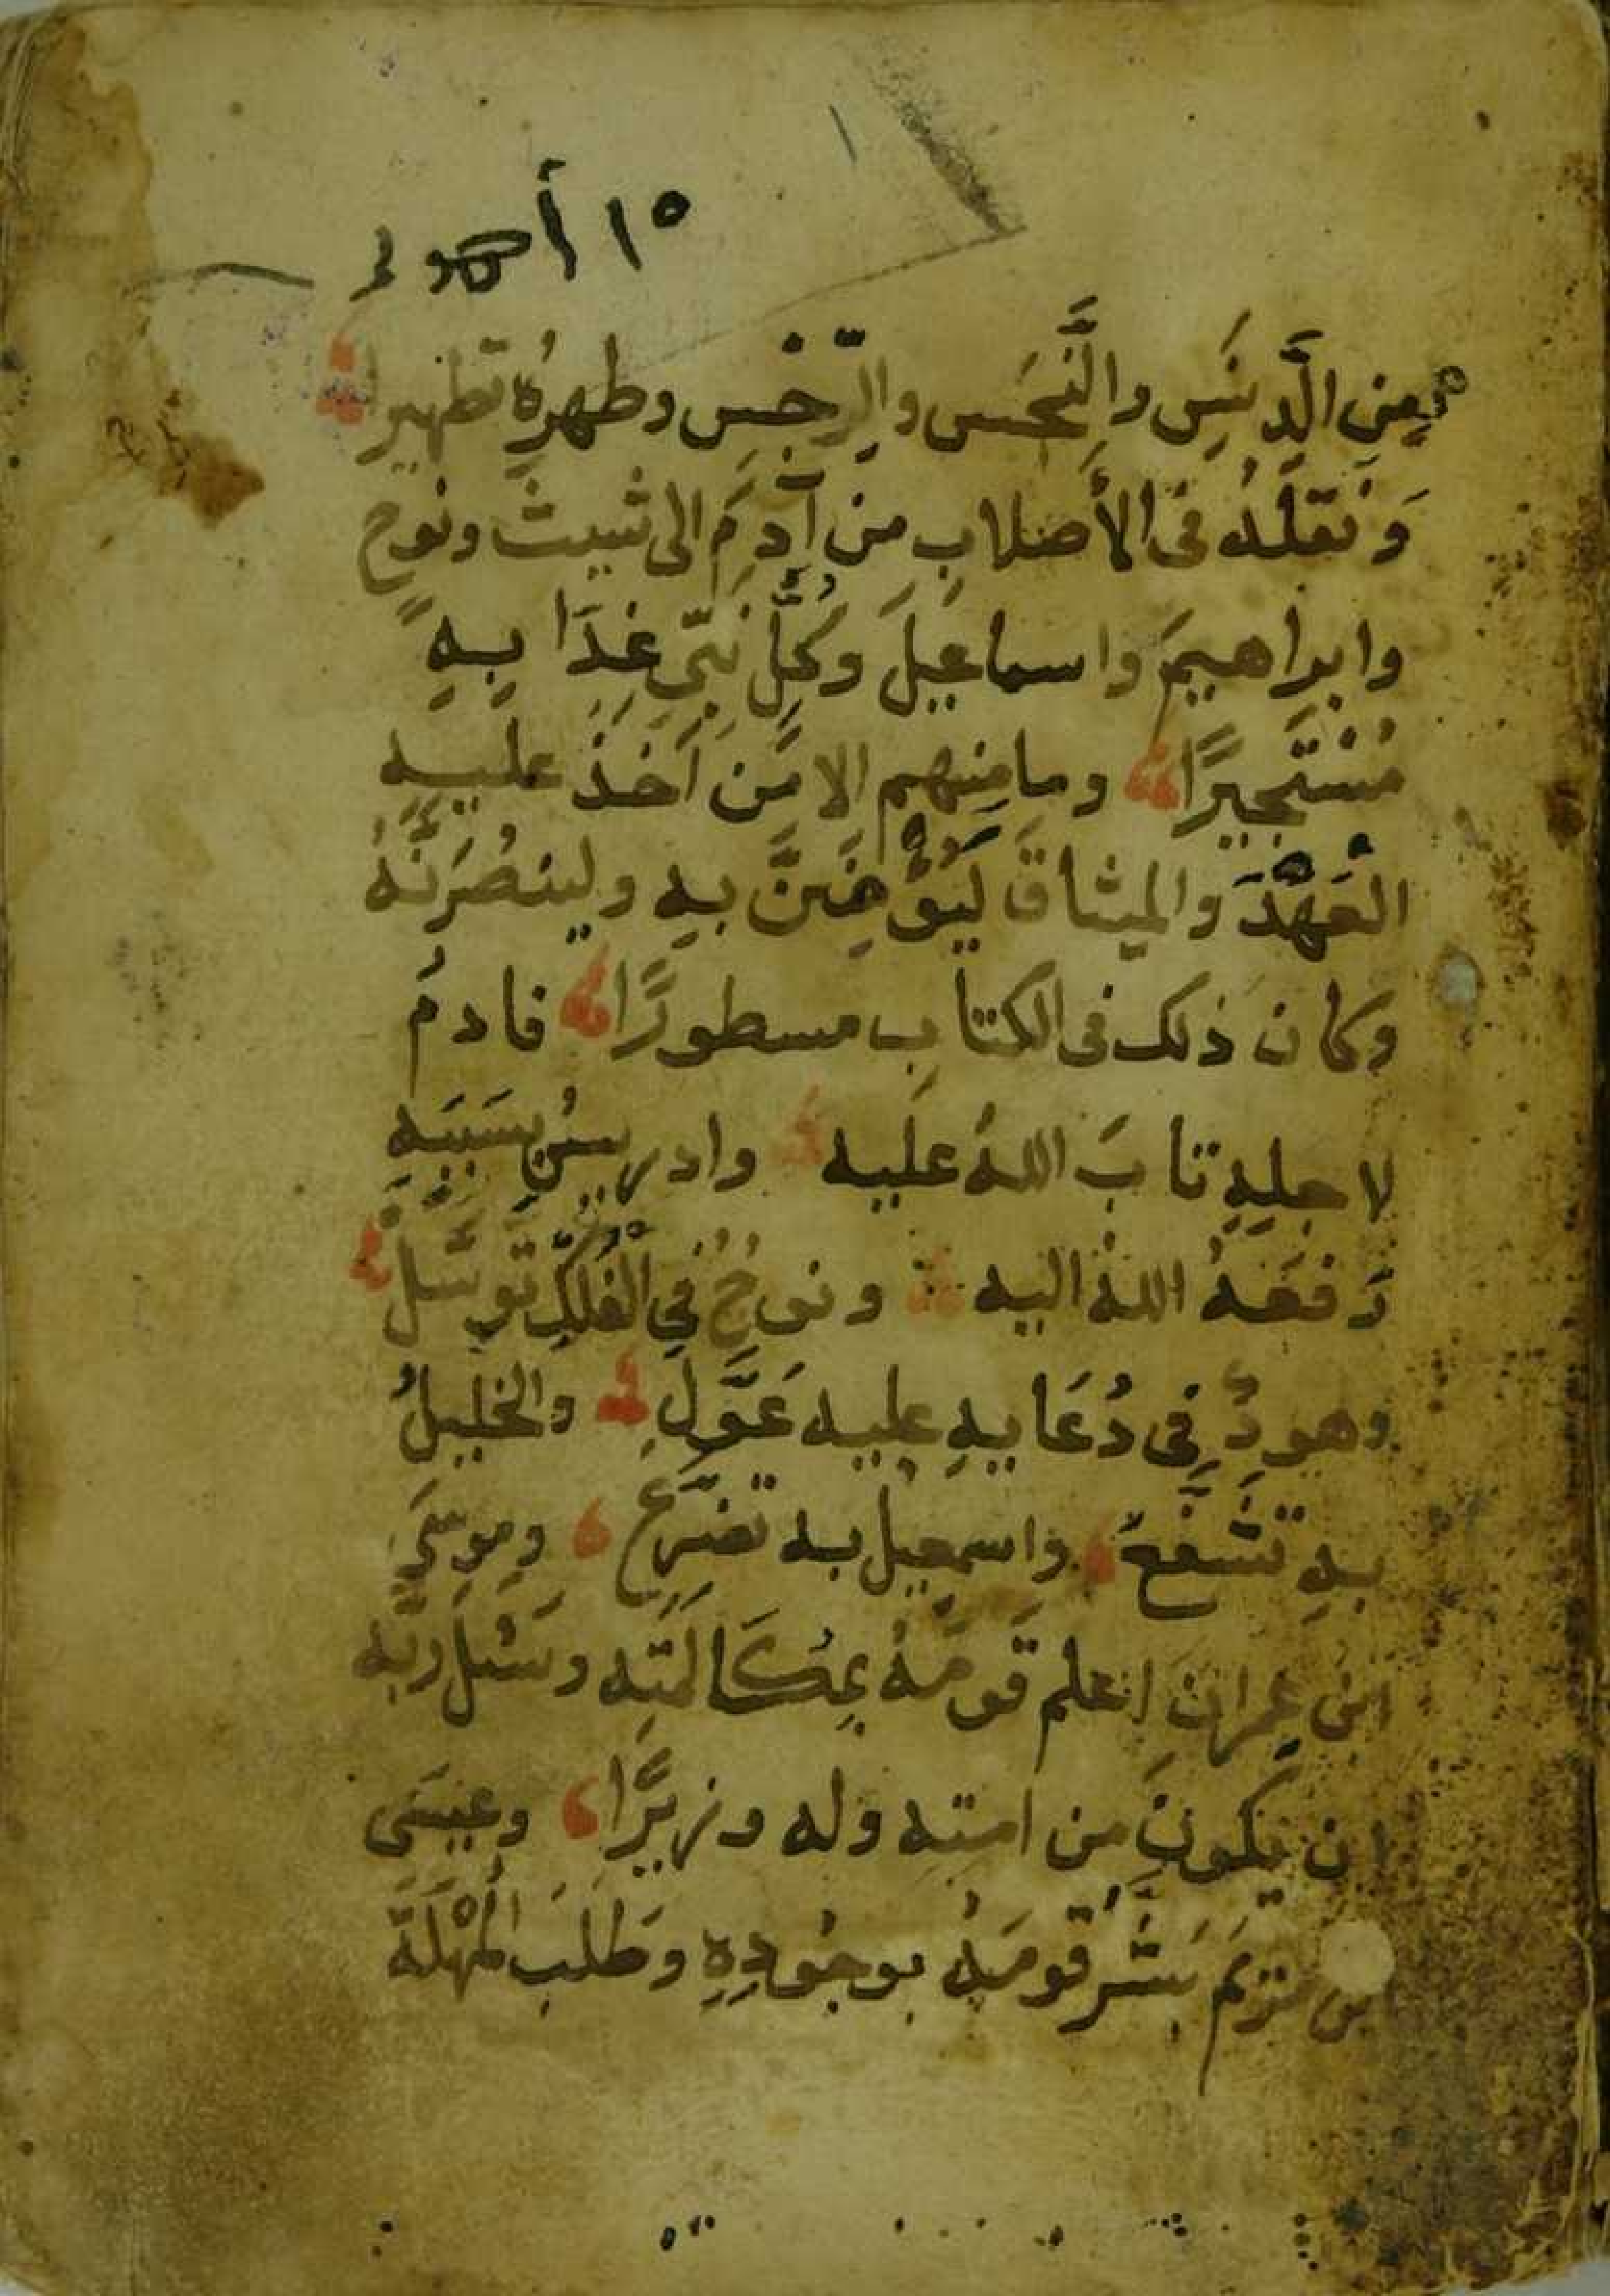 مِنِ الدَّنَسِ وَالنَّجَسِ وَالرِّجْسِ وطهرهُ تطهيرا
وَنقلَهُ فى الأَصْلَابِ من آدَمَ الى شيث ونوحٍ
وابراهيمَ واسماعيلَ وكُلُّ نَبِىٍّ غَدَا بِهِ
مُسْتَجِيرًا وما منهم الا مَن اَخَذَ عليهِ
العَهْدَ والميثاقَ لَيُؤْمِنَنَّ به ولينصُرَنَّهُ
وكان ذلك فى الكتابِ مسطورًا فادمُ
لاجلِهِ تابَ اللهُ عليه وادريسُ بِسَبَبِهِ
رَفَعَهُ اللهُ اليه ونوحٌ فِي الْفُلْكِ تَوَسَّل
وهودٌ فِى دُعَايِهِ عليه عَوَّلَ والخليلُ
بهِ تَشَفَّعَ واسمعيل به تضرَّعَ ومُوسَى
ابن عمرانَ اعلم قومَهُ بِمُكَالَمَتِه وسَئل ربَّه
ان يَكونَ من امتِه وله وزيرًا وعيسَى
مَريَم بَشَّرَ قومَهُ بوجُودِهِ وطَلَبَ الْمُهْلَةَ